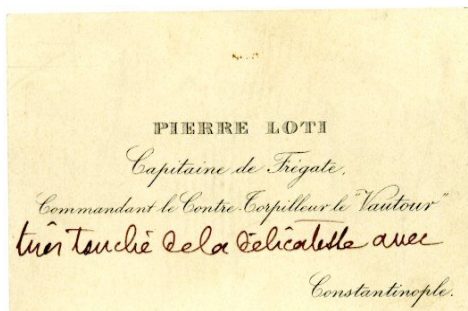 PIERRE LOTI
Capitaine de Frégate,
Commandant le Contre-Torpilleur le "Vautour"
très touché de la délicatesse avec
Constantinople.